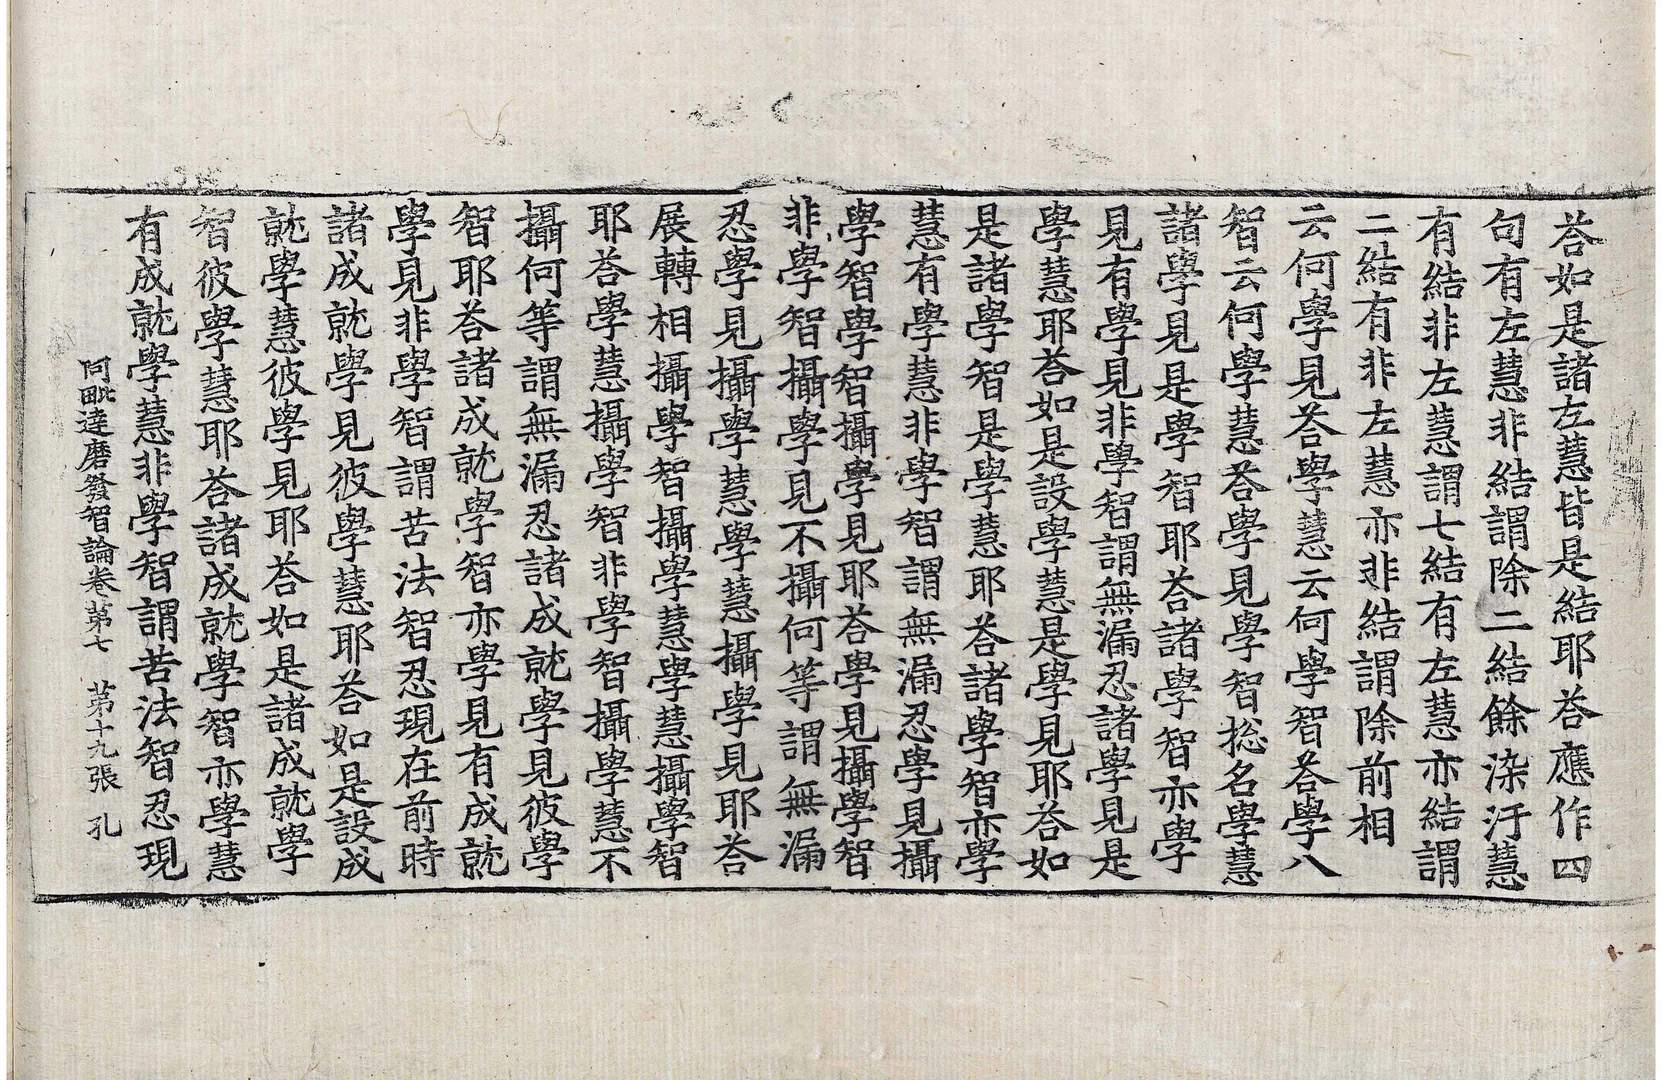 荅如是諸左慧皆是結耶荅應作四
句有左慧非結謂除二結餘染汙慧
有結非左慧謂七結有左慧亦結謂
二結有非左慧亦非結謂除前相
云何學見荅學慧云何學智荅學八
智云何學慧荅學見學智捴名學慧
諸學見是學智耶荅諸學智亦學
見有學見非學智謂無漏忍諸學見是
學慧耶荅如是設學慧是學見耶荅如
是諸學智是學慧耶荅諸學智亦學
慧有學慧非學智謂無漏忍學見攝
學智學智攝學見耶荅學見攝學智
非學智攝學見不攝何等謂無漏
忍學見攝學慧學慧攝學見耶荅
展轉相攝學智攝學慧學慧攝學智
耶荅學慧攝學智非學智攝學慧不
攝何等謂無漏忍諸成就學見彼學
智耶荅諸成就學智亦學見有成就
學見非學智謂苦法智忍現在前時
諸成就學見彼學慧耶荅如是設成
就學慧彼學見耶荅如是諸成就學
智彼學慧耶荅諸成就學智亦學慧
有成就學慧非學智謂苦法智忍現
阿毗達磨發智論卷第七 第十九張 孔